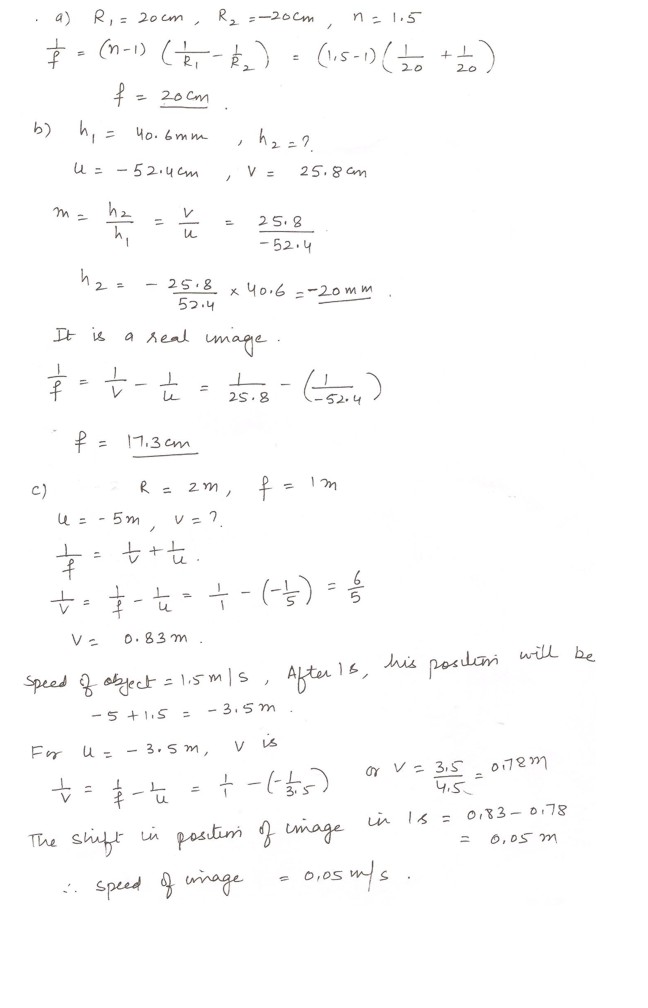 . a) R₁ = 20cm , R₂ = -20cm , n = 1.5
1/f = (n-1) (1/R₁ - 1/R₂) = (1.5-1) (1/20 + 1/20)
f = 20cm .
b) h₁ = 40.6mm , h₂ = ?.
u = -52.4cm , v = 25.8cm
m = h₂/h₁ = v/u = 25.8/-52.4
h₂ = - 25.8/52.4 × 40.6 = -20mm .
It is a real image.
1/f = 1/v - 1/u = 1/25.8 - (1/-52.4)
f = 17.3cm
c) R = 2m, f = 1m
u = -5m, v = ?.
1/f = 1/v + 1/u .
1/v = 1/f - 1/u = 1/1 - (-1/5) = 6/5
v = 0.83m .
Speed of object = 1.5m/s , After 1s, his position will be
-5 + 1.5 = -3.5m .
For u = -3.5m, v is
1/v = 1/f - 1/u = 1/1 - (-1/3.5) or v = 3.5/4.5 = 0.78m
The shift in position of image in 1s = 0.83 - 0.78
= 0.05m
∴ speed of image = 0.05m/s .